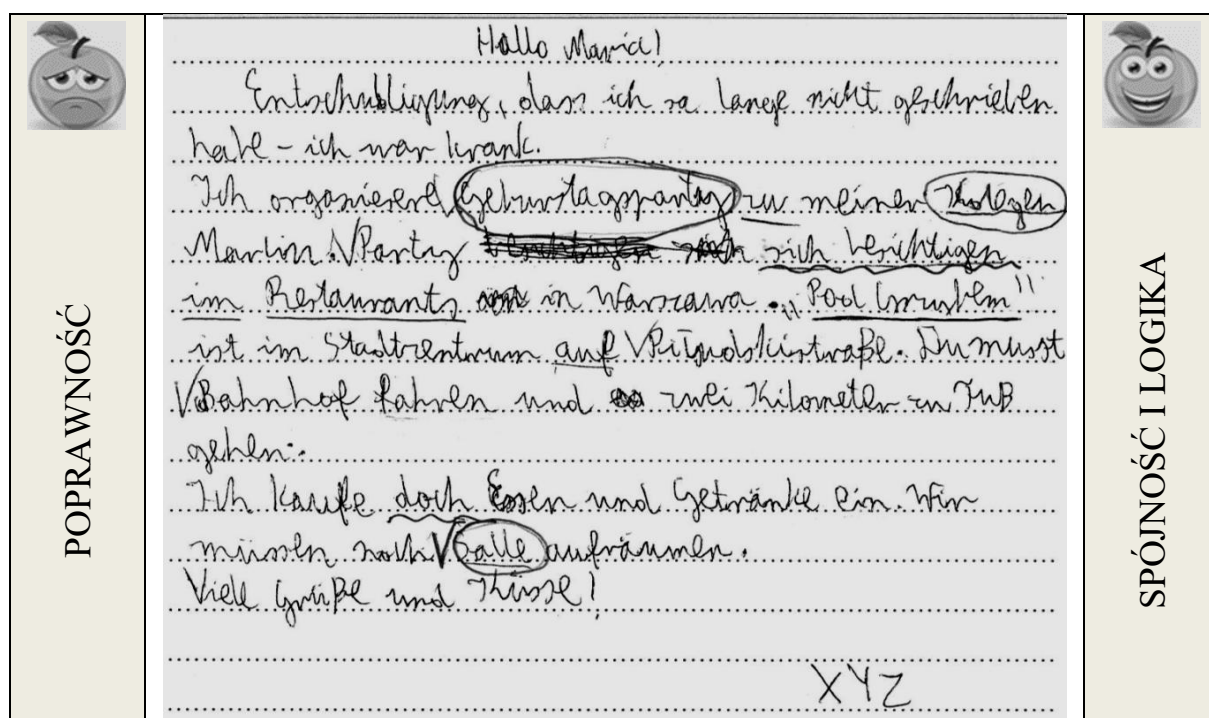 POPRAWNOŚĆ
Hallo Maria!
Entschuldigung, dass ich so lange nicht geschrieben
habe – ich war krank.
Ich organisiere Geburstagsparty zu meinen Kolegen
Martin. Party sich besichtigen
im Restaurants in Warszawa. "Pod
ist im Stadtzentrum auf Piłsudskistraße. Du musst
Bahnhof fahren und zwei Kilometer zu Fuß
gehen.
Ich kaufe doch Essen und Getränke ein. Wir
müssen noch Salle aufräumen.
Viele Grüße und Küsse!
XYZ
SPÓJNOŚĆ I LOGIKA